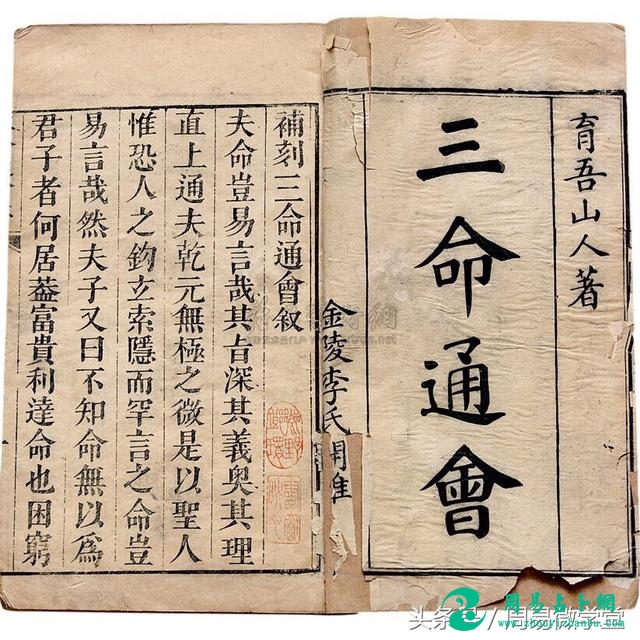 育吾山人著
三命通會
金陵李氏
補刻三命通會叙
夫命豈易言哉其旨深其義奥其理
直上通夫乾元無極之微是以聖人
惟恐人之鈎玄索隱而罕言之命豈
易言哉然夫子又曰不知命無以為
君子者何居葢富貴利達命也困窮
周易占卜網
www.zhouyizhanbu.com
头条号/周易微学堂